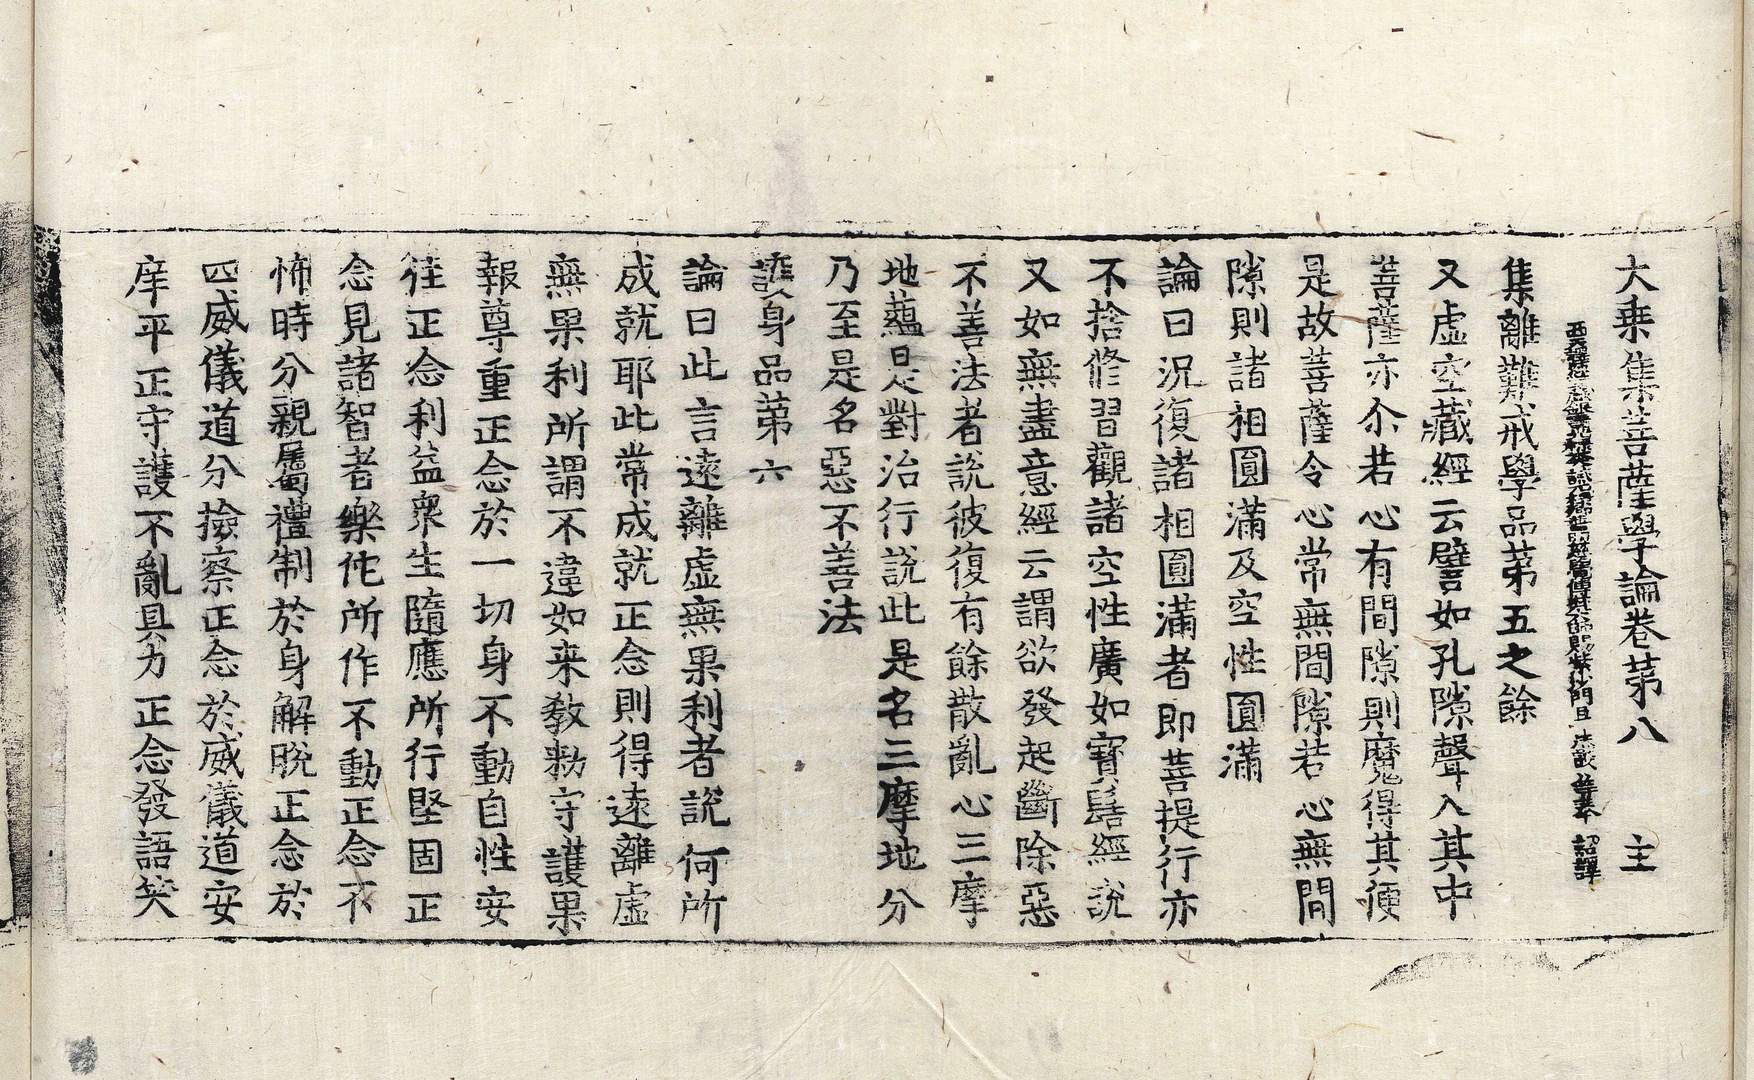 大乗集菩薩學論卷苐八　主
西天譯經三藏銀青光祿大夫試光祿卿普明慈覺傳梵大師賜紫沙門臣法護等奉　詔譯
集離難戒學品苐五之餘
又虛空藏經云譬如孔隙聲入其中
菩薩亦尒若心有間隙則魔得其便
是故菩薩令心常無間隙若心無間
隙則諸相圓滿及空性圓滿
論曰況復諸相圓滿者即菩提行亦
不捨修習觀諸空性廣如寶髻經說
又如無盡意經云謂欲發起斷除惡
不善法者說彼復有餘散亂心三摩
地蘊是對治行說此是名三摩地分
乃至是名惡不善法
護身品苐六
論曰此言遠離虛無果利者說何所
成就耶此常成就正念則得遠離虛
無果利所謂不違如来教勑守護果
報尊重正念於一切身不動自性安
住正念利益衆生隨應所行堅固正
念見諸智者樂佗所作不動正念不
怖時分親屬禮制於身解脫正念於
四威儀道分撿察正念於威儀道安
庠平正守護不亂具力正念發語笑